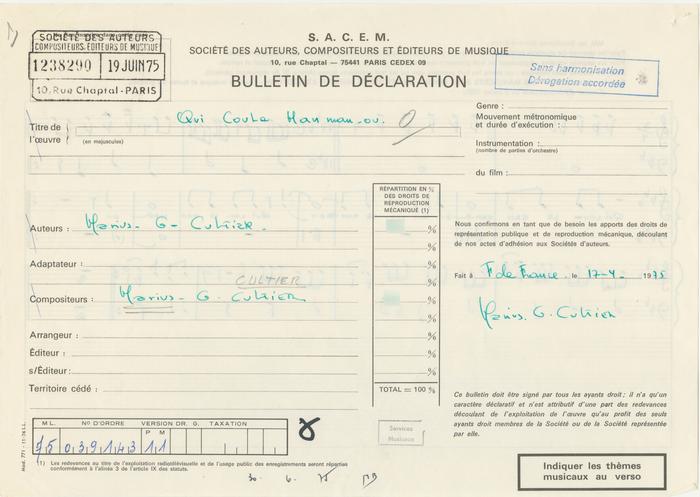 SOCIÉTÉ DES AUTEURS
COMPOSITEURS, ÉDITEURS DE MUSIQUE
1238290 19 JUIN 75
10, Rue Chaptal - PARIS
S. A. C. E. M.
SOCIÉTÉ DES AUTEURS, COMPOSITEURS ET ÉDITEURS DE MUSIQUE
10, rue Chaptal — 75441 PARIS CEDEX 09
BULLETIN DE DÉCLARATION
Sans harmonisation
Dérogation accordée
Titre de l'œuvre
(en majuscules)
Qui Coute Manman-ou.
Genre :
Mouvement métronomique
et durée d'exécution :
Instrumentation :
(nombre de parties d'orchestre)
du film :
RÉPARTITION EN %
DES DROITS DE
REPRODUCTION
MÉCANIQUE (1)
Auteurs : Marius - G - Cultier. %
Adaptateur : %
CULTIER
Compositeurs : Marius - G. Cultier %
Arrangeur : %
Éditeur : %
s/Éditeur: %
Territoire cédé : TOTAL = 100 %
Nous confirmons en tant que de besoin les apports des droits de
représentation publique et de reproduction mécanique, découlant
de nos actes d'adhésion aux Sociétés d'auteurs.
Fait à F de France. le 17-4- 1975
Marius. G. Cultier
Ce bulletin doit être signé par tous les ayants droit ; il n'a qu'un
caractère déclaratif et n'est attributif d'une part des redevances
découlant de l'exploitation de l'œuvre qu'au profit des seuls
ayants droit membres de la Société ou de la Société représentée
par elle.
Mod. 771 - 11-74 I.L.
ML. N° D'ORDRE VERSION DR. G. TAXATION
P M
75 039143 11
8
Services
Musicaux
(1) Les redevances au titre de l'exploitation radiotélévisuelle et de l'usage public des enregistrements seront réparties
conformément à l'alinéa 3 de l'article IX des statuts.
30 6 75
Indiquer les thèmes
musicaux au verso